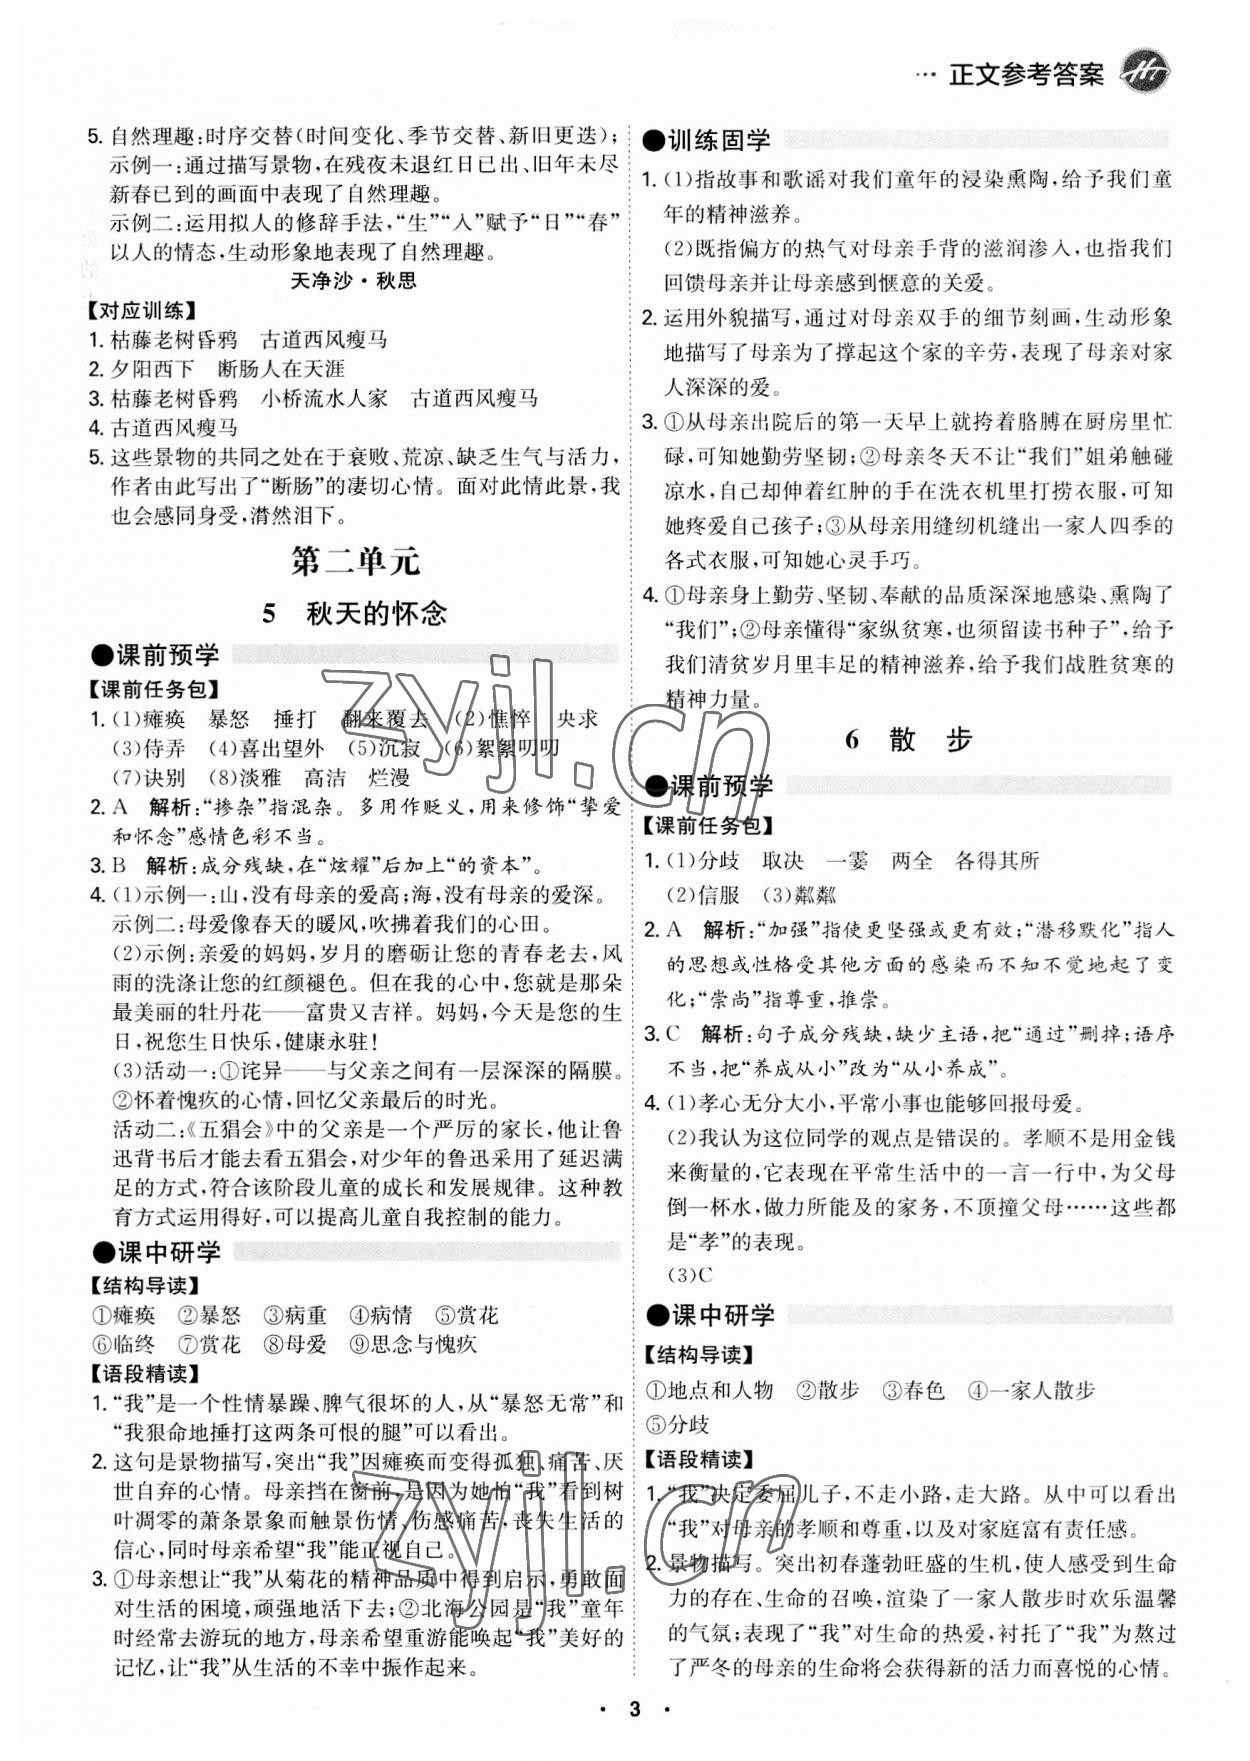 … 正文参考答案
5. 自然理趣:时序交替(时间变化、季节交替、新旧更迭);
示例一:通过描写景物,在残夜未退红日已出、旧年未尽
新春已到的画面中表现了自然理趣。
示例二:运用拟人的修辞手法,“生”“入”赋予“日”“春”
以人的情态,生动形象地表现了自然理趣。
天净沙·秋思
【对应训练】
1. 枯藤老树昏鸦 古道西风瘦马
2. 夕阳西下 断肠人在天涯
3. 枯藤老树昏鸦 小桥流水人家 古道西风瘦马
4. 古道西风瘦马
5. 这些景物的共同之处在于衰败、荒凉、缺乏生气与活力,
作者由此写出了“断肠”的凄切心情。面对此情此景,我
也会感同身受,潸然泪下。
第二单元
5 秋天的怀念
●课前预学
【课前任务包】
1. (1)瘫痪 暴怒 捶打 翻来覆去 (2)憔悴 央求
(3)侍弄 (4)喜出望外 (5)沉寂 (6)絮絮叨叨
(7)诀别 (8)淡雅 高洁 烂漫
2. A 解析:“掺杂”指混杂。多用作贬义,用来修饰“挚爱
和怀念”感情色彩不当。
3. B 解析:成分残缺,在“炫耀”后加上“的资本”。
4. (1)示例一:山,没有母亲的爱高;海,没有母亲的爱深。
示例二:母爱像春天的暖风,吹拂着我们的心田。
(2)示例:亲爱的妈妈,岁月的磨砺让您的青春老去,风
雨的洗涤让您的红颜褪色。但在我的心中,您就是那朵
最美丽的牡丹花——富贵又吉祥。妈妈,今天是您的生
日,祝您生日快乐,健康永驻!
(3)活动一:①诧异——与父亲之间有一层深深的隔膜。
②怀着愧疚的心情,回忆父亲最后的时光。
活动二:《五猖会》中的父亲是一个严厉的家长,他让鲁
迅背书后才能去看五猖会,对少年的鲁迅采用了延迟满
足的方式,符合该阶段儿童的成长和发展规律。这种教
育方式运用得好,可以提高儿童自我控制的能力。
●课中研学
【结构导读】
①瘫痪 ②暴怒 ③病重 ④病情 ⑤赏花
⑥临终 ⑦赏花 ⑧母爱 ⑨思念与愧疚
【语段精读】
1. “我”是一个性情暴躁、脾气很坏的人,从“暴怒无常”和
“我狠命地捶打这两条可恨的腿”可以看出。
2. 这句是景物描写,突出“我”因瘫痪而变得孤独、痛苦、厌
世自弃的心情。母亲挡在窗前,是因为她怕“我”看到树
叶凋零的萧条景象而触景伤情、伤感痛苦,丧失生活的
信心,同时母亲希望“我”能正视自己。
3. ①母亲想让“我”从菊花的精神品质中得到启示,勇敢面
对生活的困境,顽强地活下去;②北海公园是“我”童年
时经常去游玩的地方,母亲希望重游能唤起“我”美好的
记忆,让“我”从生活的不幸中振作起来。
●训练固学
1. (1)指故事和歌谣对我们童年的浸染熏陶,给予我们童
年的精神滋养。
(2)既指偏方的热气对母亲手背的滋润渗入,也指我们
回馈母亲并让母亲感到惬意的关爱。
2. 运用外貌描写,通过对母亲双手的细节刻画,生动形象
地描写了母亲为了撑起这个家的辛劳,表现了母亲对家
人深深的爱。
3. ①从母亲出院后的第一天早上就挎着胳膊在厨房里忙
碌,可知她勤劳坚韧;②母亲冬天不让“我们”姐弟触碰
凉水,自己却伸着红肿的手在洗衣机里打捞衣服,可知
她疼爱自己孩子;③从母亲用缝纫机缝出一家人四季的
各式衣服,可知她心灵手巧。
4. ①母亲身上勤劳、坚韧、奉献的品质深深地感染、熏陶了
“我们”;②母亲懂得“家纵贫寒,也须留读书种子”,给予
我们清贫岁月里丰足的精神滋养,给予我们战胜贫寒的
精神力量。
6 散 步
●课前预学
【课前任务包】
1. (1)分歧 取决 一霎 两全 各得其所
(2)信服 (3)粼粼
2. A 解析:“加强”指使更坚强或更有效;“潜移默化”指人
的思想或性格受其他方面的感染而不知不觉地起了变
化;“崇尚”指尊重,推崇。
3. C 解析:句子成分残缺,缺少主语,把“通过”删掉;语序
不当,把“养成从小”改为“从小养成”。
4. (1)孝心无分大小,平常小事也能够回报母爱。
(2)我认为这位同学的观点是错误的。孝顺不是用金钱
来衡量的,它表现在平常生活中的一言一行中,为父母
倒一杯水,做力所能及的家务,不顶撞父母……这些都
是“孝”的表现。
(3)C
●课中研学
【结构导读】
①地点和人物 ②散步 ③春色 ④一家人散步
⑤分歧
【语段精读】
1. “我”决定委屈儿子,不走小路,走大路。从中可以看出
“我”对母亲的孝顺和尊重,以及对家庭富有责任感。
2. 景物描写。突出初春蓬勃旺盛的生机,使人感受到生命
力的存在、生命的召唤,渲染了一家人散步时欢乐温馨
的气氛;表现了“我”对生命的热爱,衬托了“我”为熬过
了严冬的母亲的生命将会获得新的活力而喜悦的心情。
zyjl.cn
zyjl.cn
· 3 ·